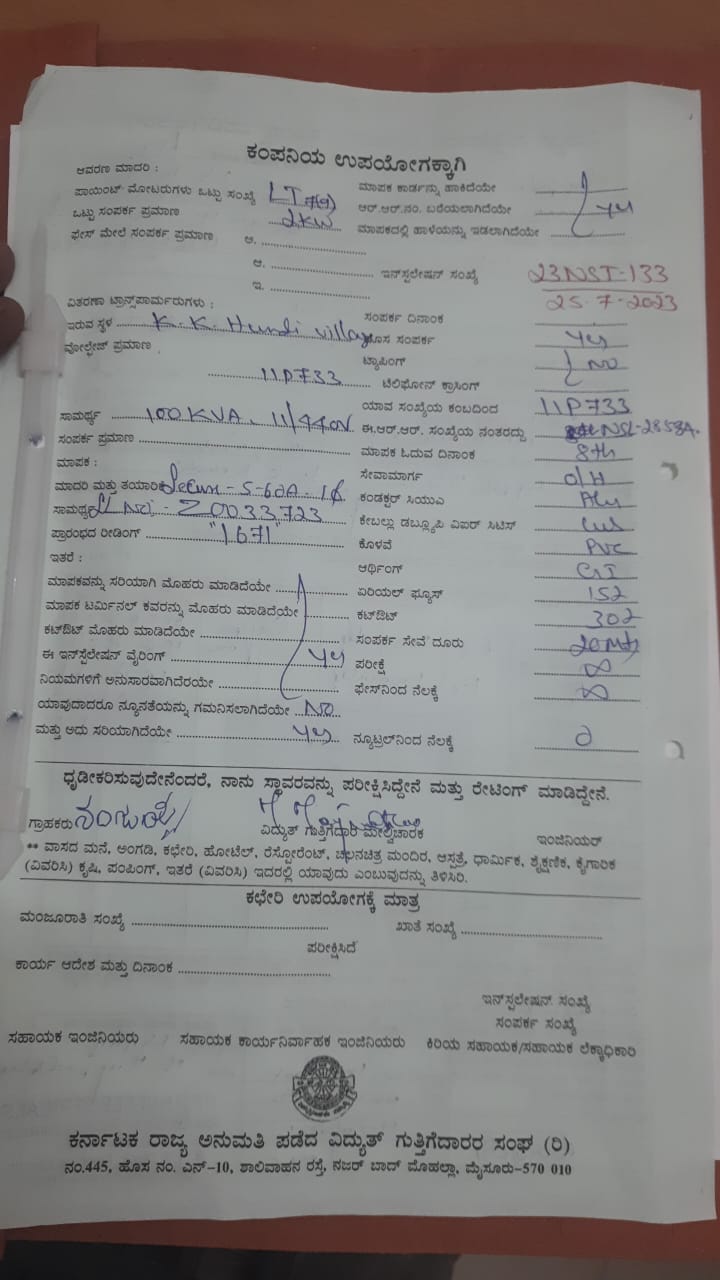 ಕಂಪನಿಯ ಉಪಯೋಗಕ್ಕಾಗಿ
ಆವರಣ ಮಾದರಿ :
ಪಾಯಿಂಟ್ ಮೋಟರುಗಳು ಒಟ್ಟು ಸಂಖ್ಯೆ LT ಮಾಪಕ ಕಾರ್ಡನ್ನು ಹಾಕಿದೆಯೇ
ಒಟ್ಟು ಸಂಪರ್ಕ ಪ್ರಮಾಣ 2KW ಆರ್.ಆರ್.ನಂ. ಬರೆಯಲಾಗಿದೆಯೇ yes
ಫೇಸ್ ಮೇಲೆ ಸಂಪರ್ಕ ಪ್ರಮಾಣ ಮಾಪಕದಲ್ಲಿ ಹಾಳೆಯನ್ನು ಇಡಲಾಗಿದೆಯೇ
ಅ. ........................
ಆ. ........................ ಇನ್‌ಸ್ಟಲೇಷನ್ ಸಂಖ್ಯೆ 23NST-133
ಇ. ........................ 25-7-2023
ವಿತರಣಾ ಟ್ರಾನ್ಸ್‌ಪಾರ್ಮರುಗಳು : ಸಂಪರ್ಕ ದಿನಾಂಕ
ಇರುವ ಸ್ಥಳ K.K. Hundi village ಹೊಸ ಸಂಪರ್ಕ yes
ವೋಲ್ಟೇಜ್ ಪ್ರಮಾಣ ಟ್ಯಾಪಿಂಗ್ NO
11P733 ಟೆಲಿಫೋನ್ ಕ್ರಾಸಿಂಗ್
ಯಾವ ಸಂಖ್ಯೆಯ ಕಂಬದಿಂದ 11P733
ಸಾಮರ್ಥ್ಯ 100KVA, 11/440V ಈ.ಆರ್.ಆರ್. ಸಂಖ್ಯೆಯ ನಂತರದ್ದು
ಸಂಪರ್ಕ ಪ್ರಮಾಣ ........................ ಮಾಪಕ ಓದುವ ದಿನಾಂಕ 8th
ಮಾಪಕ : ಸೇವಾಮಾರ್ಗ O/H
ಮಾದರಿ ಮತ್ತು ತಯಾರಿಕೆ ಕಂಡಕ್ಟರ್ ಸಿಯುಎ Alu
ಸಾಮರ್ಥ್ಯ Sl No:- Z0033723 ಕೇಬಲ್ಲು ಡಬ್ಲ್ಯೂಪಿ ವಿಐರ್ ಸಿಟಿಸ್
ಪ್ರಾರಂಭದ ರೀಡಿಂಗ್ "1671" ಕೊಳವೆ PVC
ಇತರೆ : ಆರ್ಥಿಂಗ್ GI
ಮಾಪಕವನ್ನು ಸರಿಯಾಗಿ ಮೊಹರು ಮಾಡಿದೆಯೇ ಏರಿಯಲ್ ಫ್ಯೂಸ್ 152
ಮಾಪಕ ಟರ್ಮಿನಲ್ ಕವರನ್ನು ಮೊಹರು ಮಾಡಿದೆಯೇ ಕಟ್‌ಔಟ್ 302
ಕಟ್‌ಔಟ್ ಮೊಹರು ಮಾಡಿದೆಯೇ ಸಂಪರ್ಕ ಸೇವೆ ದೂರು 20Mts
ಈ ಇನ್‌ಸ್ಟೆಲೇಷನ್ ವೈರಿಂಗ್ yes ಪರೀಕ್ಷೆ ∞
ನಿಯಮಗಳಿಗೆ ಅನುಸಾರವಾಗಿದೆರಯೇ ಫೇಸ್‌ನಿಂದ ನೆಲಕ್ಕೆ ∞
ಯಾವುದಾದರೂ ನ್ಯೂನತೆಯನ್ನು ಗಮನಿಸಲಾಗಿದೆಯೇ NO
ಮತ್ತು ಅದು ಸರಿಯಾಗಿದೆಯೇ yes ನ್ಯೂಟ್ರಲ್‌ನಿಂದ ನೆಲಕ್ಕೆ
ಧೃಡೀಕರಿಸುವುದೇನೆಂದರೆ, ನಾನು ಸ್ಥಾವರವನ್ನು ಪರೀಕ್ಷಿಸಿದ್ದೇನೆ ಮತ್ತು ರೇಟಿಂಗ್ ಮಾಡಿದ್ದೇನೆ.
ಗ್ರಾಹಕರು ವಿದ್ಯುತ್ ಗುತ್ತಿಗೆದಾರಿ ಮೇಲ್ವಿಚಾರಕ ಇಂಜಿನಿಯರ್
** ವಾಸದ ಮನೆ, ಅಂಗಡಿ, ಕಛೇರಿ, ಹೋಟೆಲ್, ರೆಸ್ಟೋರೆಂಟ್, ಚಲನಚಿತ್ರ ಮಂದಿರ, ಆಸ್ಪತ್ರೆ, ಧಾರ್ಮಿಕ, ಶೈಕ್ಷಣಿಕ, ಕೈಗಾರಿಕೆ
(ವಿವರಿಸಿ) ಕೃಷಿ, ಪಂಪಿಂಗ್, ಇತರೆ (ವಿವರಿಸಿ) ಇದರಲ್ಲಿ ಯಾವುದು ಎಂಬುವುದನ್ನು ತಿಳಿಸಿರಿ.
ಕಛೇರಿ ಉಪಯೋಗಕ್ಕೆ ಮಾತ್ರ
ಮಂಜೂರಾತಿ ಸಂಖ್ಯೆ ........................ ಖಾತೆ ಸಂಖ್ಯೆ ........................
ಪರೀಕ್ಷಿಸಿದೆ
ಕಾರ್ಯ ಆದೇಶ ಮತ್ತು ದಿನಾಂಕ ........................
ಇನ್‌ಸ್ಪಲೇಷನ್ ಸಂಖ್ಯೆ
ಸಂಪರ್ಕ ಸಂಖ್ಯೆ
ಸಹಾಯಕ ಇಂಜಿನಿಯರು ಸಹಾಯಕ ಕಾರ್ಯನಿರ್ವಾಹಕ ಇಂಜಿನಿಯರು ಕಿರಿಯ ಸಹಾಯಕ/ಸಹಾಯಕ ಲೆಕ್ಕಾಧಿಕಾರಿ
ಕರ್ನಾಟಕ ರಾಜ್ಯ ಅನುಮತಿ ಪಡೆದ ವಿದ್ಯುತ್ ಗುತ್ತಿಗೆದಾರರ ಸಂಘ (ರಿ)
ನಂ.445, ಹೊಸ ನಂ. ಎನ್-10, ಶಾಲಿವಾಹನ ರಸ್ತೆ, ನಜರ್ ಬಾದ್ ಮೊಹಲ್ಲಾ, ಮೈಸೂರು-570 010